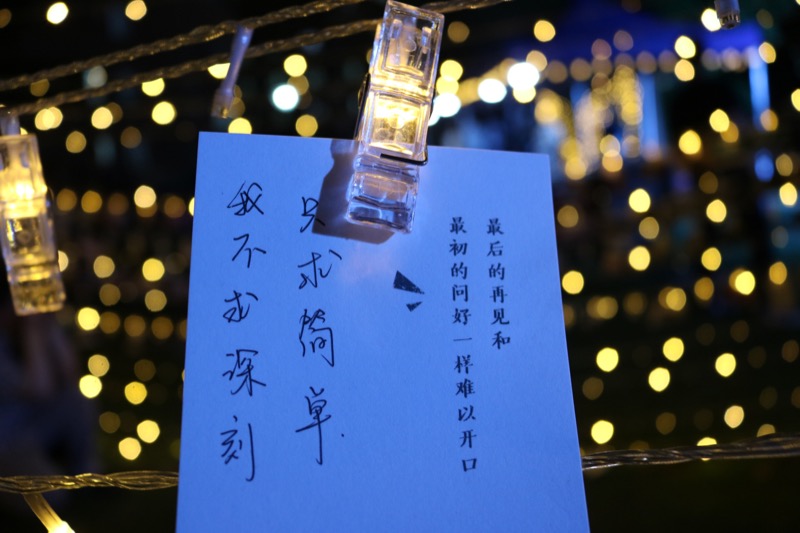 最后的再见和
最初的问好一样难以开口
我不求深刻
只求简单.